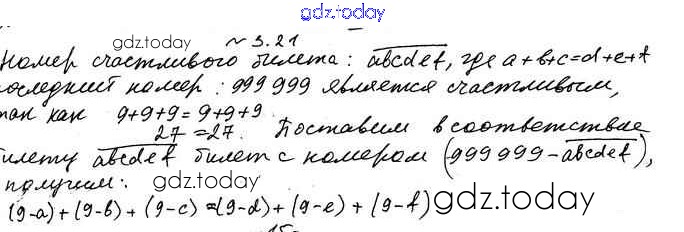 gdz.today
№ 3.21
Номер счастливого билета: abcdef, где a+b+c=d+e+f
gdz.today
последний номер: 999 999 является счастливым,
так как 9+9+9=9+9+9
gdz.today
27=27. Поставим в соответствие
билету abcdef билет с номером (999 999-abcdef),
получим:
gdz.today
(9-a)+(9-b)+(9-c)=(9-d)+(9-e)+(9-f)
gdz.today